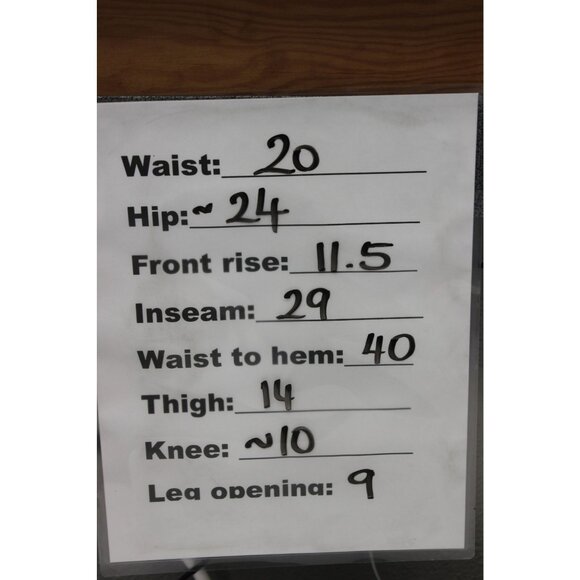 Waist: 20
Hip: ~ 24
Front rise: 11.5
Inseam: 29
Waist to hem: 40
Thigh: 14
Knee: ~10
Leg opening: 9